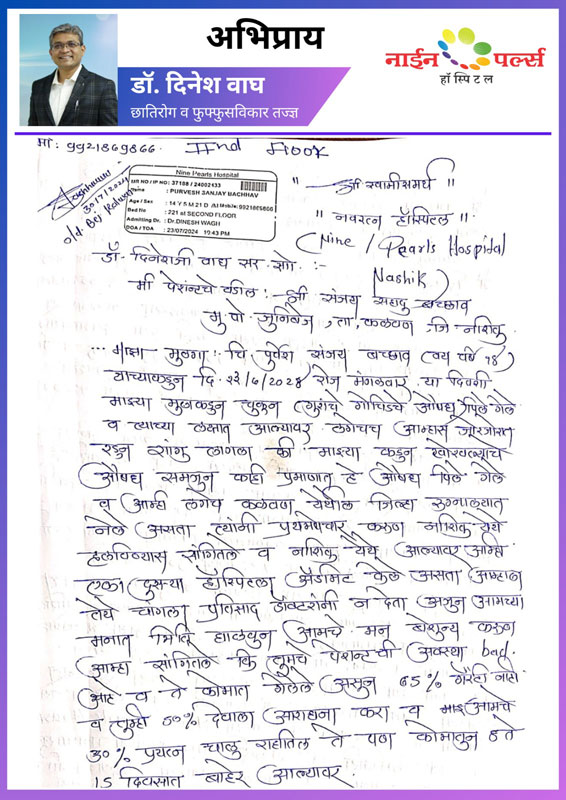 अभिप्राय
नाईन पर्ल्स
हॉस्पिटल
डॉ. दिनेश वाघ
छातिरोग व फुफ्फुसविकार तज्ञ
मो: 9921869866. IInd floor
Nine Pearls Hospital
MR NO / IP NO: 37108 / 24002133
Name : PURVESH SANJAY BACHHAV
Age / Sex : 14 Y 5 M 21 D /M Mobile: 9921865866
Bed No : 221 at SECOND FLOOR
Admitting Dr.: Dr.DINESH WAGH
DOA / TOA : 23/07/2024 10:43 PM
30/7/2024
old. Bej Kalwan
" श्री स्वामी समर्थ "
" नवरत्न हॉस्पिटल
(Nine / Pearls Hospital
Nashik)
डॉ. दिनेशजी वाघ सर सो :-
मी पेशंटचे वडील :- श्री संजय सहादु बच्छाव
मु पो जुनिबेज, ता, कळवण, जि नाशिक
... माझा मुलगा चि पुर्वेश संजय बच्छाव (वय वर्षे १४)
याच्याकडुन दि. २३/७/२०२४ रोज मंगळवार या दिवशी
माझ्या मुलाकडुन चुकुन (गुरांचे गोचिडचे औषध) पिले गेले
व त्याच्या लक्षात आल्यावर लगेचच आम्हास जोरजोरात
रडुन सांगु लागला की माझ्या कडुन खोकल्याचे
औषध समजुन काही प्रमाणात हे औषध पिले गेले
व आम्ही लगेच कळवण येथील जिल्हा रुग्णालयात
नेले असता त्यांनी प्रथमोपचार करुण नाशिक येथे
हलविण्यास सांगितले व नाशिक येथे आल्यावर आम्ही
एका दुसऱ्या हॉस्पिटला अ‍ॅडमिट केले असता आम्हाला
तेथे चांगला प्रतिसाद डॉक्टरांनी न देता अजुन आमच्या
मनात भिति घालवुन आमचे मन बेशुन्य करुण
आम्हा सांगितले कि तुमचे पेशन्टची अवस्था bad
आहे व ते कोमात गेलेले असुन 65% गॅरंटी नाही
व तुम्ही 50% देवाला आराधना करा व आमचे
30% प्रयत्न चालु राहतिल ते पण कोमातुन
15 दिवसात बाहेर आल्यावर.